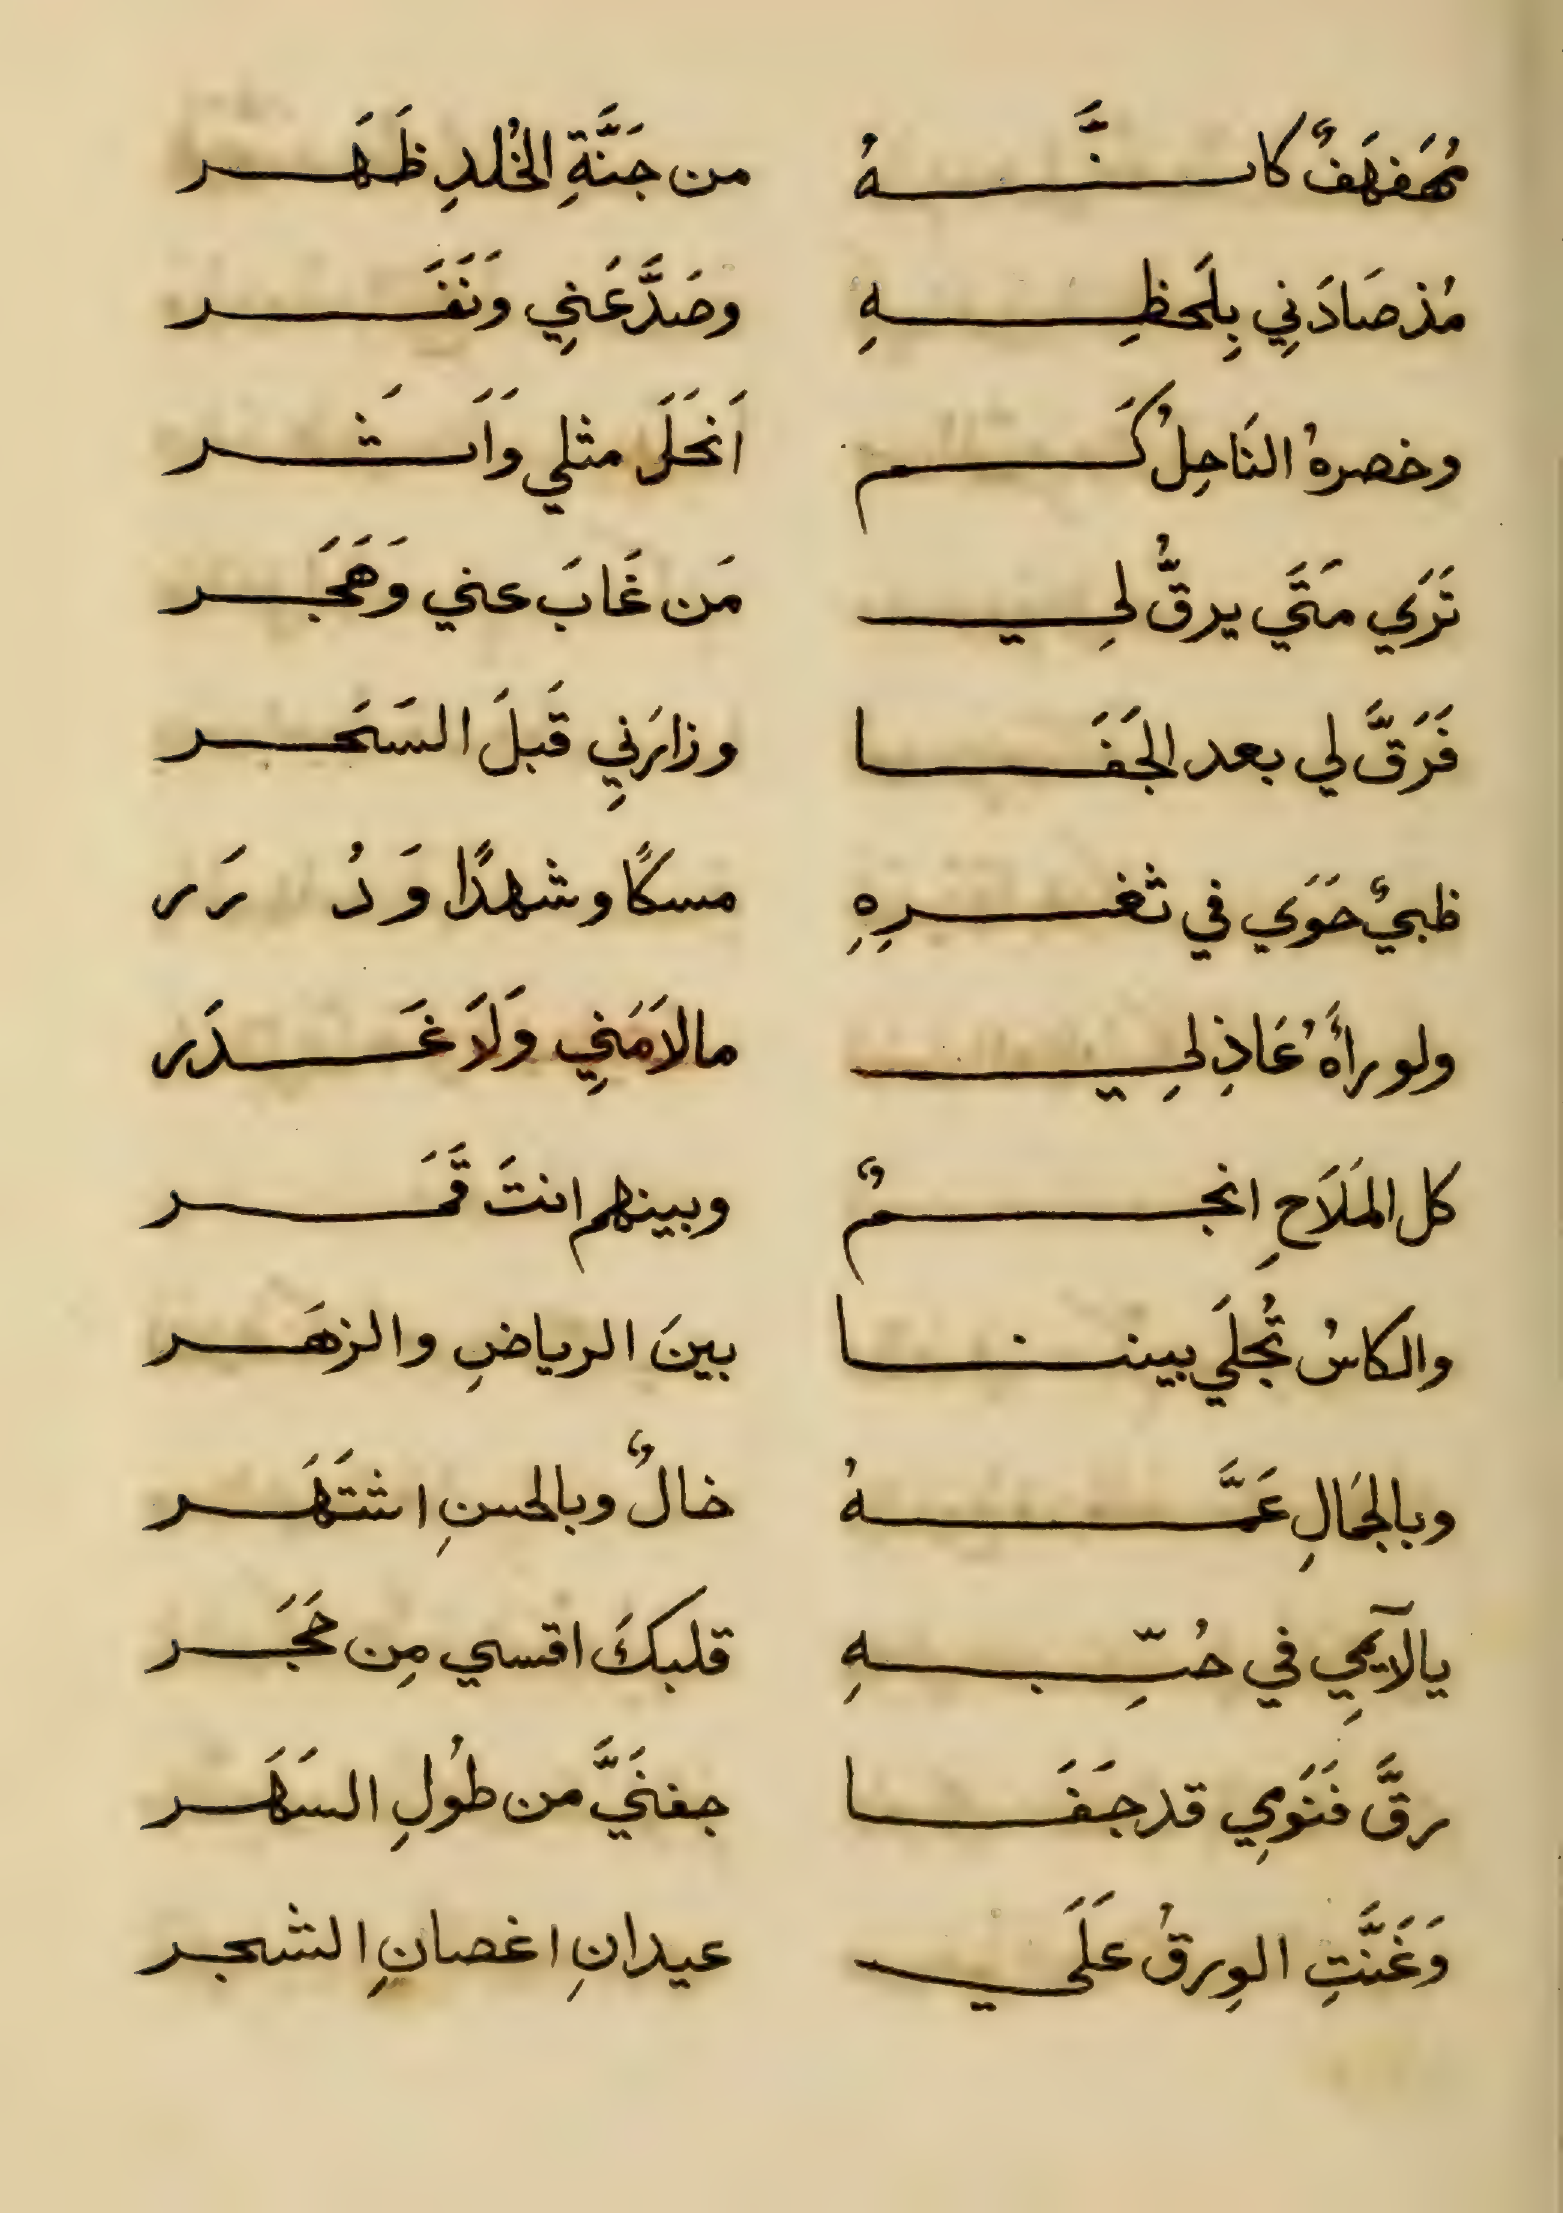 مُهَفهَفٌ كانَّهُ من جَنَّةِ الخُلدِ ظَهَر
مُذ صَادَنِي بِلَحظِهِ وصَدَّ عَنِي وَنَفَر
وخصرهُ النَاحِلُ كَم اَنحَلَ مثلي وَاَثَر
تَرَي مَتَي يرقُّ لِي مَن غَابَ عني وَهَجَر
فَرَقَّ لي بعد الجَفَا وزارَنِي قَبلَ السَحَر
ظبيٌ حَوَي في ثغرِهِ مسكًا وشهدًا وَدُرَر
ولو رأَهُ عَاذِلِي مالاَمَنِي وَلاَ غَدَر
كل المَلاَحِ انجمٌ وبينهم انتَ قَّمَر
والكاسُ تُجلَي بيننا بينَ الرياضِ والزهَر
وبالجَمالِ عَمَّهُ خالٌ وبالحسنِ اشتَهَر
يالآيمِي في حُبِّهِ قلبكَ اقسي مِن حَجَر
رقَّ فَنَومِي قد جَفَا جفنَيَّ من طُولِ السَهَر
وَغَنَّتِ الوِرقُ عَلَي عيدانِ اغصانِ الشجر